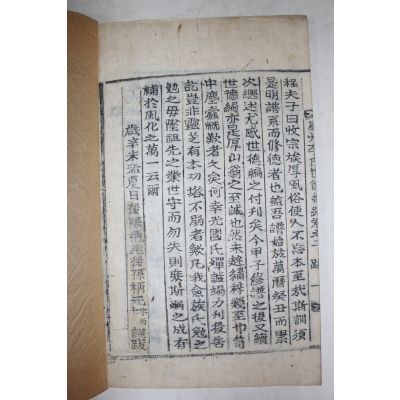 程夫子曰收宗族厚風俗使人不忘本至哉斯訓須
是明譜系而修德者也益吾譜始於萬曆癸丑而累
次繼述无感世德編之付刊矣今甲子修譜之後又續
世德編亦是厚山翁之至誠也然未遑繡梓藏至巾笥
中塵蠹慨歎者久矣何幸光國氏殫誠竭力刊役告
訖豈非靈芝有本功塔不崩者歟凡我僉族氏勉之
勉之毋墜祖先之業世守而勿失則庶斯編之成有
補於風化之萬一云爾
歲辛未孟夏日後孫炳元 謹跋